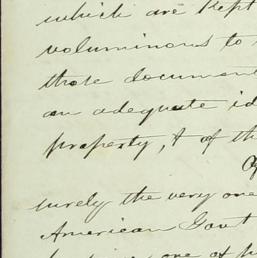 which are kept
voluminous to
those document
an adequate id
property, & of th
surely the very one
American Govt